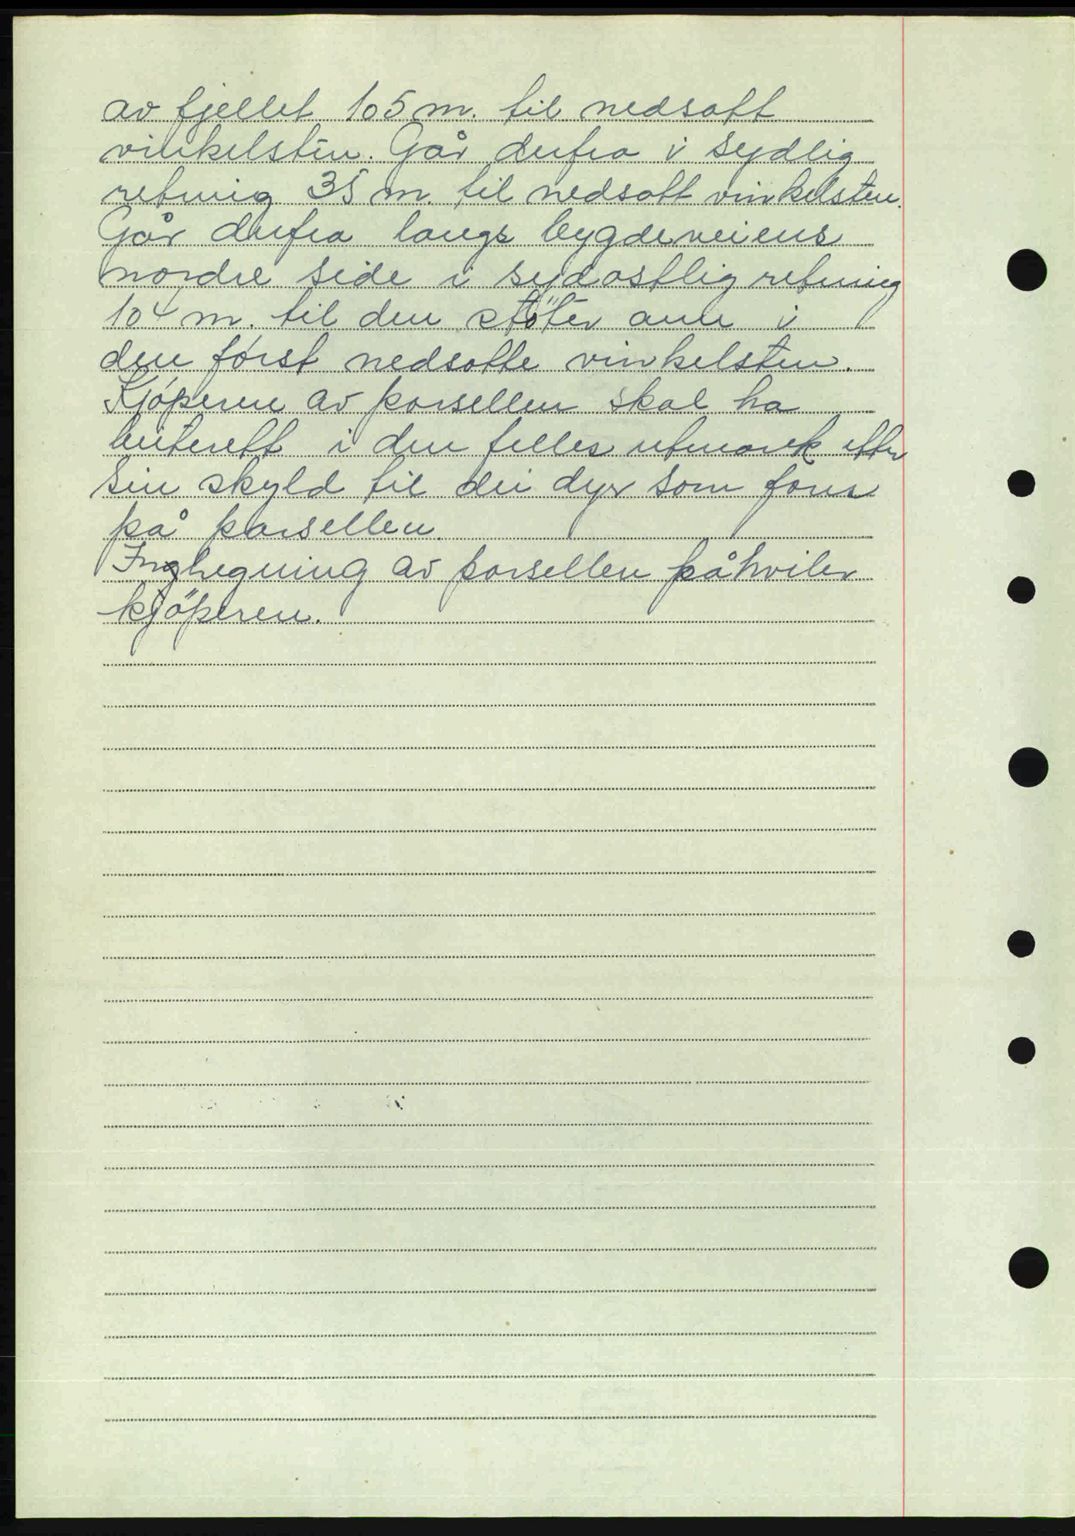 av fjellet 105 m. til nedsatt
vinkelsten. Går derfra i sydlig
retning 35 m. til nedsatt vinkelsten.
Går derfra langs bygdeveiens
nordre side i sydøstlig retning
104 m. til den støter ann i
den først nedsatte vinkelsten.
Kjøperen av parsellen skal ha
beiterett i den felles utmark etter
sin skyld til dei dyr som fores
på parsellen.
Inghegning av parsellen påhviler
kjøperen.